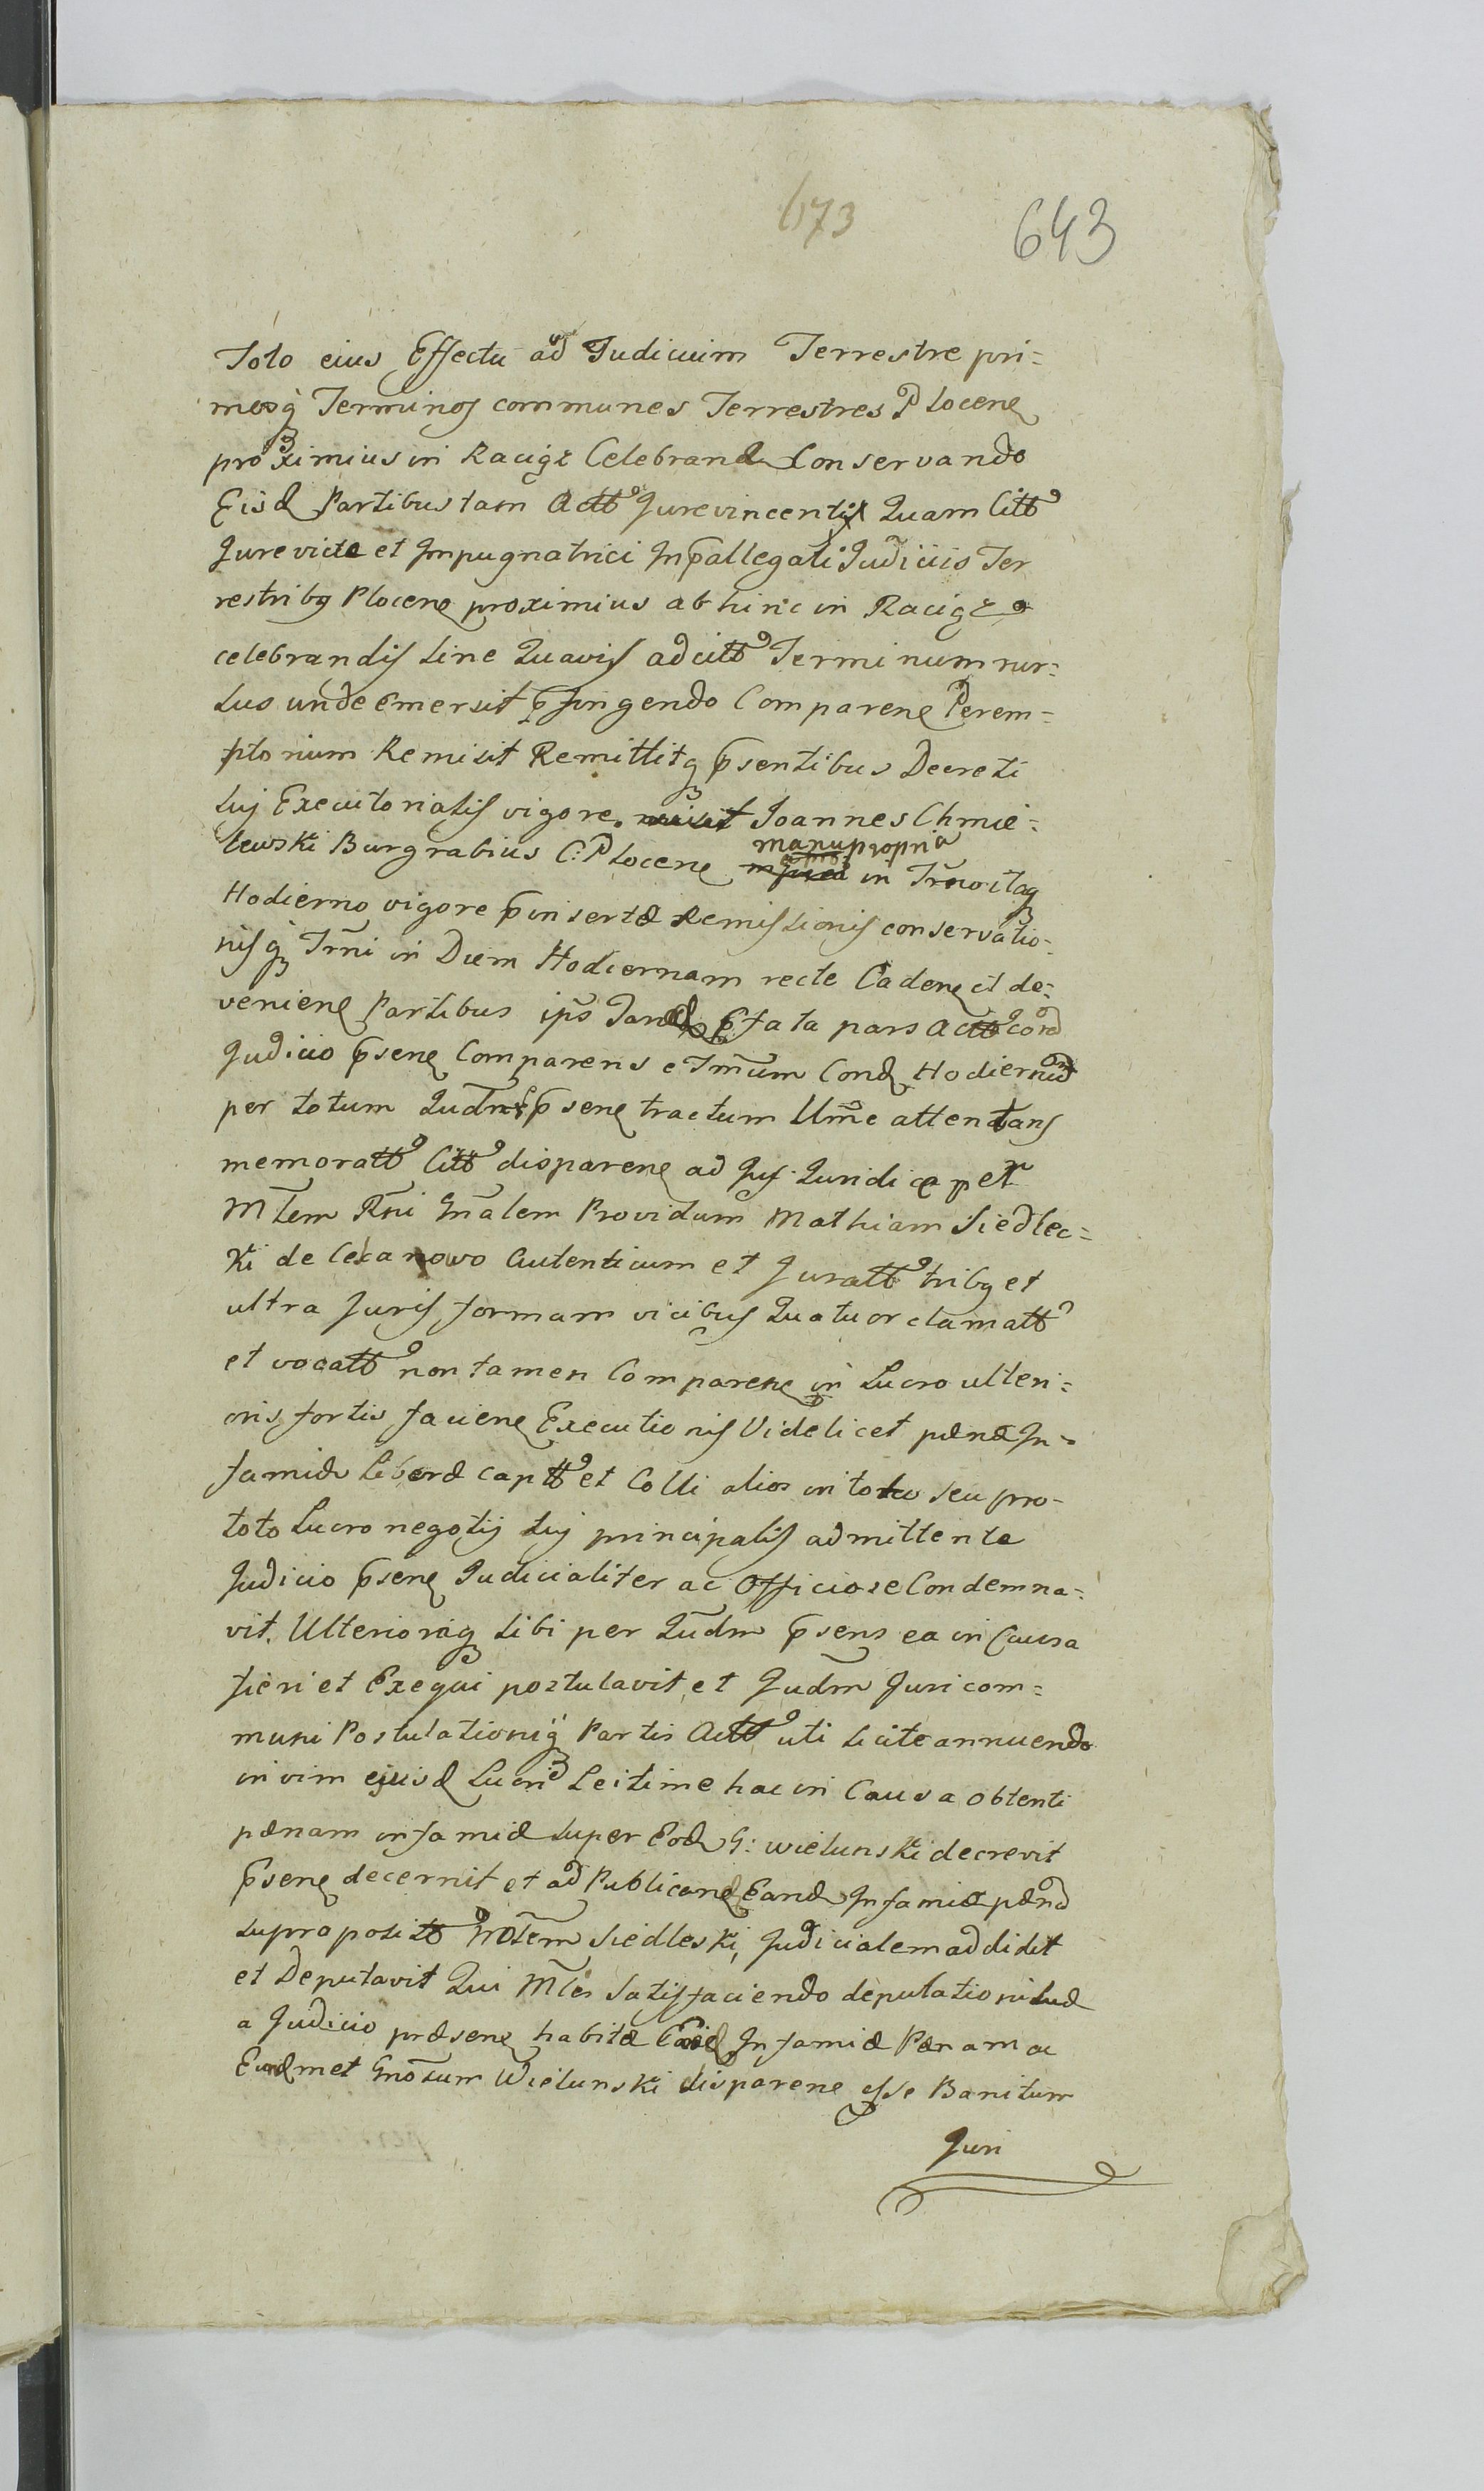 673
643
Toto eius Effectu ad Judicium Terrestre pri=
mosq Terminos communes Terrestres Plocen
proximius in Raciąż Celebrand Conservando
Eisd Partibus tam Actt Jurevincenti Quam Citt
Jurevictæ et Impugnatrici In pallegati Judiciis Ter
restribq Plocen proximius ab hinc in Raciąż
celebrandis Sine Quavis ad citt Terminum rur=
sus unde emersit pfungendo Comparen Perem=
ptorium Remisit Remittitq psentibus Decreti
sui Executorialis vigore. Joannes Chmie=
lewski Burgrabius C: Plocen manu propria in Trnoitaq
Hodierno vigore pinsertæ Remissionis conservatio=
nisq Trni in Diem Hodiernam recte Caden et de=
venien Partibus ips Jand pfata pars Actt cord
Judicio psen Comparens e Trnum Cond Hodiernũ
per totum Judm psen tractum Ume attentans
memoratt Citt disparen ad Jus Juridice per
Mlem Rni Gnalem Providum Mathiam Siedlec=
ki de Cekanowo Autenticum et Juratt tribq et
ultra Juris formam vicibus Quatuor clamatt
et vocatt non tamen Comparen in Lucro ulteri=
oris fortis facien Executionis Videlicet pænæ In=
famiæ Liberæ captt et Colli alios in toto seu pro=
toto Lucro negotij sui principalis admittente
Judicio psen Judicialiter ac Officiose Condemna=
vit. Ulterioraq sibi per Judm psens ea in Causa
fieri et Exequi postulavit et Judm Juri com=
muni Postulationiq Partis Actt uti licite annuendo
in vim ejusd Lucri Leitime hac in Causa obtenti
pænam infamiæ super Eod G: Wielunski decrevit
psen decernit et ad Publicand Eand Infamiæ pænã
suprapositt Mlem Siedleski, Judicialem addidit
et Deputavit Qui Mles Satisfaciendo deputationi suæ
a Judicio præsen habitæ Eand Infamiæ Pænam ac
Eundmet Gnosum Wielunski disparen esse Banitum
Juri